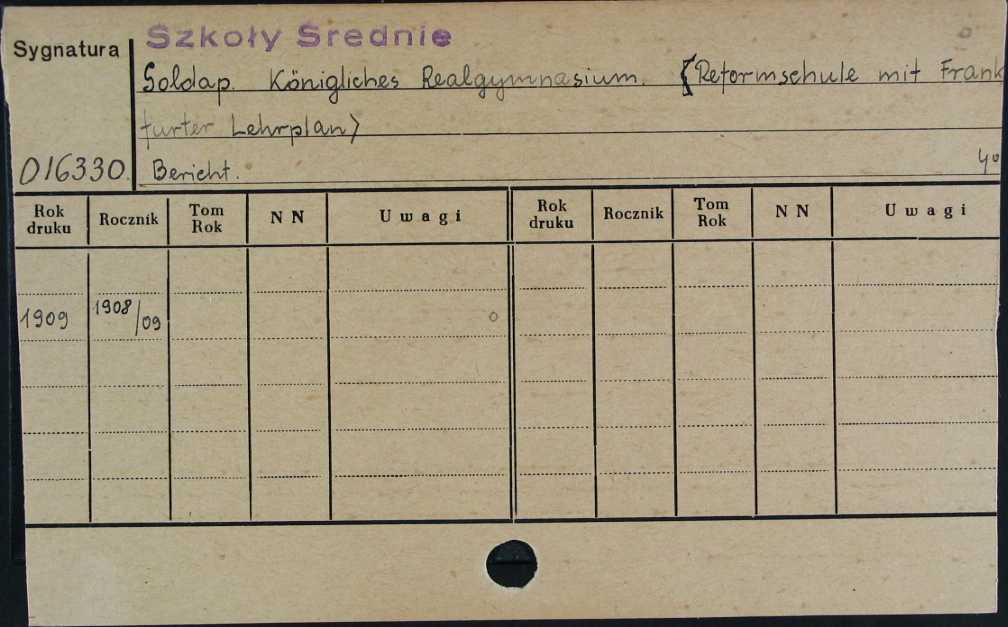 Szkoły Średnie
Sygnatura
Soldap. Königliches Realgymnasium. {Reformschule mit Frank
furter Lehrplan>
016330. Bericht. 4o
Rok druku Rocznik Tom Rok NN Uwagi Rok druku Rocznik Tom Rok NN Uwagi
1909 1908/09